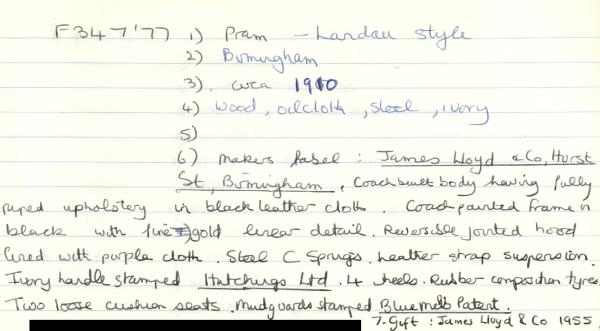 F347'77 1) Pram - Landau Style
2) Birmingham
3). circa 1910
4) wood, oilcloth, steel, ivory
5)
6) makers label : James Lloyd & Co, Hurst
St, Birmingham, Coachbuilt body having fully
piped upholstery in black leather cloth. Coachpainted frame in
black with fine gold linear detail. Reversible jointed hood
lined with purple cloth. Steel C Springs. Leather strap suspension.
Ivory handle stamped Hutchings Ltd. 4 wheels. Rubber composition tyres.
Two loose cushion seats. Mudguards stamped Bluemels Patent.
7- Gift : James Lloyd & Co 1955